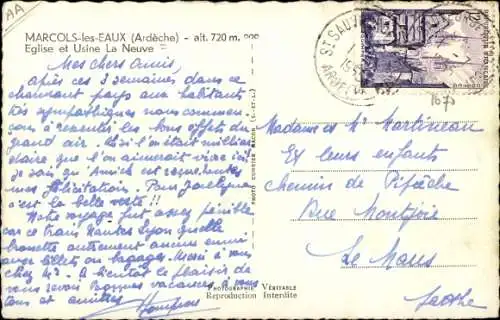 AA
MARCOLS-les-EAUX (Ardèche) - alt. 720 m.
Eglise et Usine La Neuve
Mes chers Amis
après ces 3 semaines dans ce
charmant pays aux habitants
très sympathiques nous commen-
çons à ressentir les bons effets du
grand air. Si l'on était million-
naire que l'on aimerait vivre ici
je sais qu'Amich est
mes félicitations. Pour Jocelyne
c'est la belle vie !!
Notre voyage fut assez pénible
car ce train Nantes Lyon quelle
brouette autrement aucun ennui
avec billets ou bagages. Merci à vous
chez M. A bientôt le plaisir de
vous revoir Bonnes vacances à vous
tous et amitiés
PHOTO COMBIER MACON (S.-et-L.)
PHOTOGRAPHIE VÉRITABLE
Reproduction Interdite
ST SAUV
ARDÈ
167
Madame et Mr Martineau
Et leurs enfants
Chemin de Pifèche
Rue Montjoie
Le Mans
Sarthe